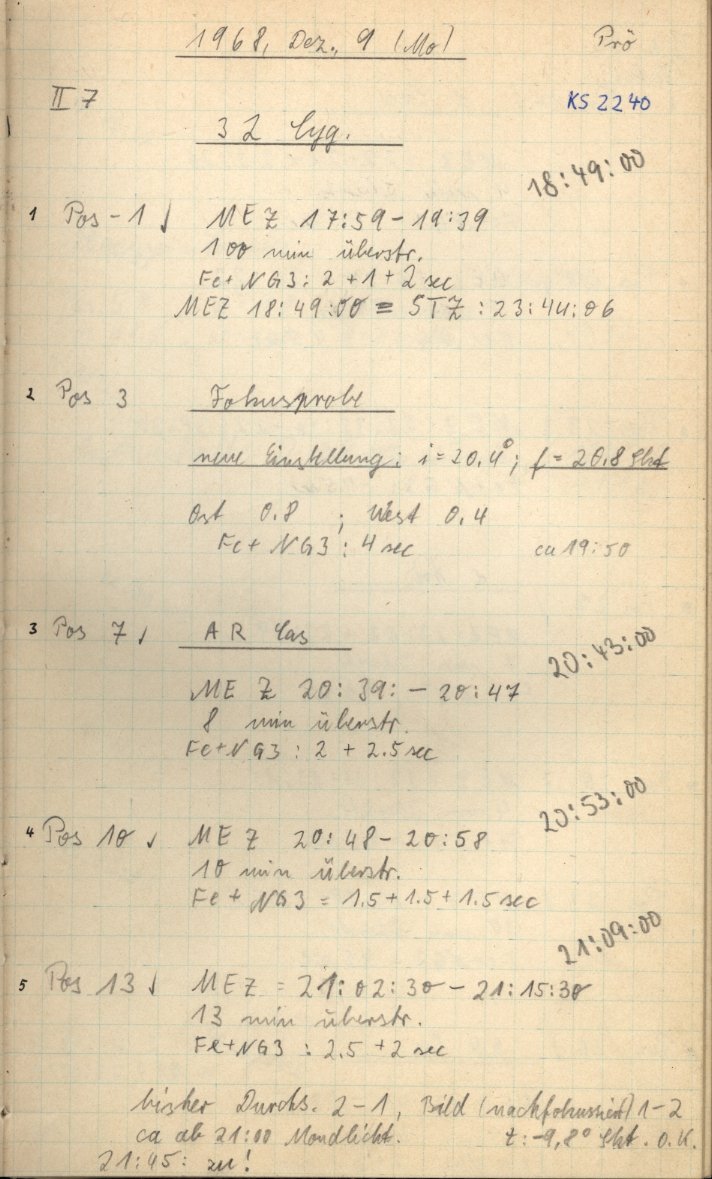 1968, Dez., 9 (Mo) Prö
II 7 KS 2240
32 Cyg.
18:49:00
1 Pos -1 ↓ MEZ 17:59 - 19:39
100 min überstr.
Fe + NG3: 2 + 1 + 2 sec
MEZ 18:49:00 = STZ : 23:44:06
2 Pos 3 Fokusprobe
neue Einstellung: i = 20.4°; f = 20.8 Skt
Ost 0.8 ; West 0.4
Fe + NG3 : 4 sec ca 19:50
3 Pos 7 ↓ AR Cas
20:43:00
MEZ 20:39: - 20:47
8 min überstr.
Fe + NG3 : 2 + 2.5 sec
20:53:00
4 Pos 10 ↓ MEZ 20:48 - 20:58
10 min überstr.
Fe + NG3 = 1.5 + 1.5 + 1.5 sec
21:09:00
5 Pos 13 ↓ MEZ = 21:02:30 - 21:15:30
13 min überstr.
Fe + NG3 : 2.5 + 2 sec
bisher Durchs. 2 - 1, Bild (nachfokussiert) 1 - 2
ca ab 21:00 Mondlicht. t: -9,8° Skt. O.K.
21:45: zu!